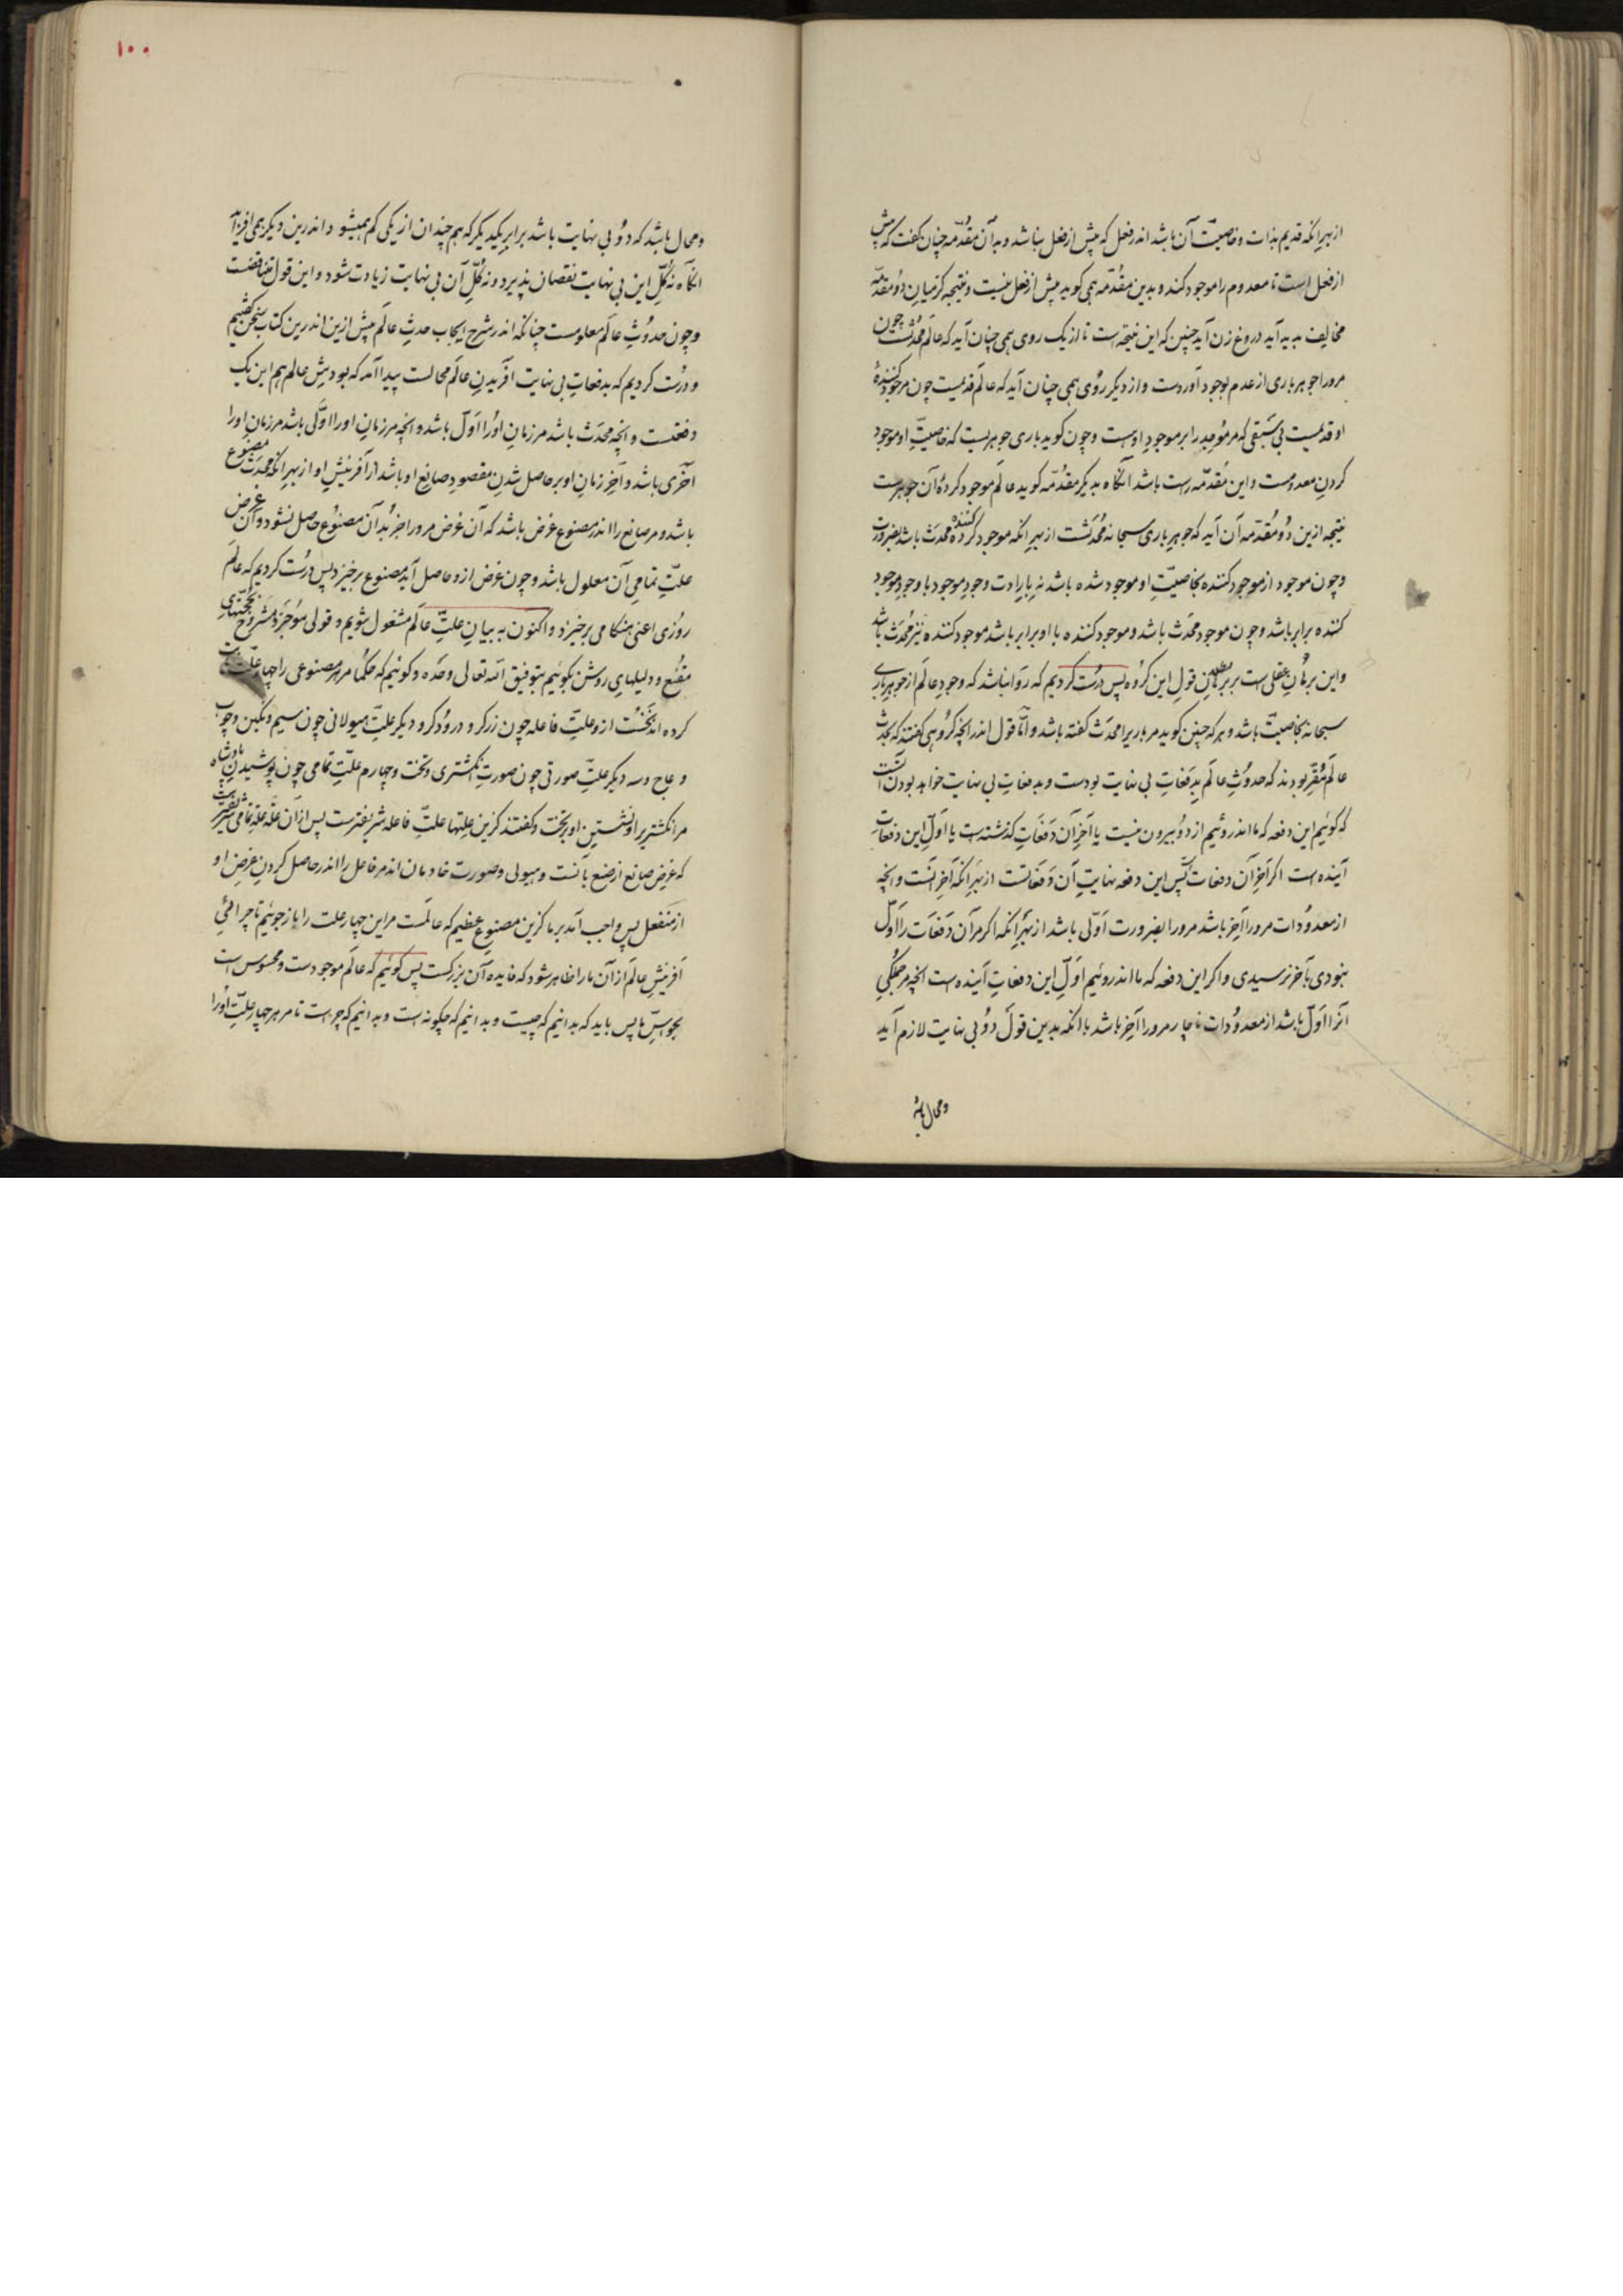 از بهر آنکه قدیم بذات و خاصیت آن باشد اندر فعل که پیش از فعل نباشد و بدان مقدّمه چنان گفت که پیش
از فعل است تا معدوم را موجود کند و بدین مقدّمه همی گوید پیش از فعل نیست و نتیجه کز میان دو مقدّمه
مخالف پدید آید دروغ زن آید چنین که این نتیجه است تا از یک روی همی چنان آید که عالم محدثست چون
مرورا جوهر باری از عدم بوجود آوردست و از دیگر روی همی چنان آید که عالم قدیمست چون مر موجود کنندهٔ
او قدیمست بی سبقی که مر موجد را بر موجود اوست و چون گوید باری جوهریست که خاصیّت او موجود
کردن معدومست و این مقدّمه راست باشد آنگاه بدیگر مقدّمه گوید عالم موجود کردهٔ آن جوهرست
نتیجه ازین دو مقدّمه آن آید که جوهر باری سبحانه محدثست از بهر آنکه موجود کننده محدث باشد بضرورت
و چون موجود از موجود کننده بخاصیّت او موجود شده باشد نه بارادت وجود موجود با وجود موجود
کننده برابر باشد و چون موجود محدث باشد و موجود کننده با او برابر باشد موجود کننده نیز محدث باشد
و این برهان عقلی است بر بطلان قول این گروه پس درست کردیم که روا نباشد که وجود عالم از جوهر باری
سبحانه بخاصیّت باشد و هر که چنین گوید مر باریرا محدث گفته باشد و امّا قول اندر آنچه گروهی گفتند که بحدث
عالم مقرّ بودند که حدوث عالم بدفعات بی نهایت بودست و بدفعات بی نهایت خواهد بودن آنست
که گوئیم این دفعه که ما اندروئیم از دو بیرون نیست یا آخر آن دفعات گذشته است یا اوّل این دفعات
آینده است اگر آخر آن دفعات است پس این دفعه نهایت آن دفعاتست از بهر آنکه آخر آنست و آنچه
از معدودات مرورا آخر باشد مرورا بضرورت اوّلی باشد از بهر آنکه اگر مر آن دفعات را اوّل
نبودی بآخر نرسیدی و اگر این دفعه که ما اندروئیم اوّل این دفعات آینده است آنچه مر جملگی
آنرا اوّل باشد از معدودات ناچار مرورا آخر باشد با آنکه بدین قول دو بی نهایت لازم آید
و محال باشد
۱۰۰
و محال باشد که دو بی نهایت باشد برابر یکدیگر که هم چندان از یکی کم همیشود اندرین دیگر همی افزاید
آنگاه نه کلّ این بی نهایت نقصان پذیرد و نه کلّ آن بی نهایت زیادت شود و این قول متناقضست
و چون حدوث عالم معلومست چنانکه اندر شرح ایجاب حدث عالم پیش ازین اندرین کتاب سخن گفتیم
و درست کردیم که بدفعات بی نهایت آفریدن عالم محالست پیدا آمد که بودش عالم هم این یک
دفعتست و آنچه محدث باشد مر زمان اورا اوّل باشد و آنچه مر زمان اورا اوّلی باشد مر زمان اورا
آخری باشد و آخر زمان او بر حاصل شدن مقصود صانع او باشد از آفرینش او از بهر آنکه محدث مصنوع
باشد و مر صانع را اندر مصنوع غرض باشد که آن غرض مرورا جز بدان مصنوع حاصل نشود و آن غرض
علّت تمامی آن معلول باشد و چون غرض ازو حاصل آید مصنوع برخیزد پس درست کردیم که عالم
روزی اعنی هنگامی برخیزد و اکنون به بیان علّت عالم مشغول شویم و قولی موجز و مشروح بحجّتهای
مقنع و دلیلهای روشن بگوئیم بتوفیق الله تعالی وحده و گوئیم که حکما مر هر مصنوعی را چهار علّت ثابت
کرده اند نخست ازو علّت فاعله چون زرگر و درودگر و دیگر علّت هیولانی چون سیم و نگین و چوب
و عاج و سه دیگر علّت صورتی چون صورت انگشتری و تخت و چهارم علّت تمامی چون پوشیدن پادشاه
مر انگشتریرا و نشستن او بر تخت و گفتند کزین علّتها علّت فاعله شریفترست پس از آن علّت تمامی شریفترست
که غرض صانع از صنع بآنست و هیولی و صورت خادمان اند مر فاعل را اندر حاصل کردن غرض او
از منفعل پس واجب آمد بر ما کزین مصنوع عظیم که عالمست مر این چهار علت را باز جوئیم تا چرائی
آفرینش عالم از آن ما را ظاهر شود که فایده آن بزرگست پس گوئیم که عالم موجودست و محسوس است
بحواسّ ما پس باید که بدانیم که چیست و بدانیم که چگونه است و بدانیم که چراست تا مر هر چهار علّت اورا